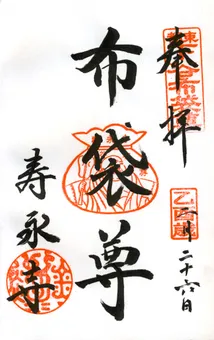 奉拝
乙酉歳
一月二十六日
布袋尊
寿永寺